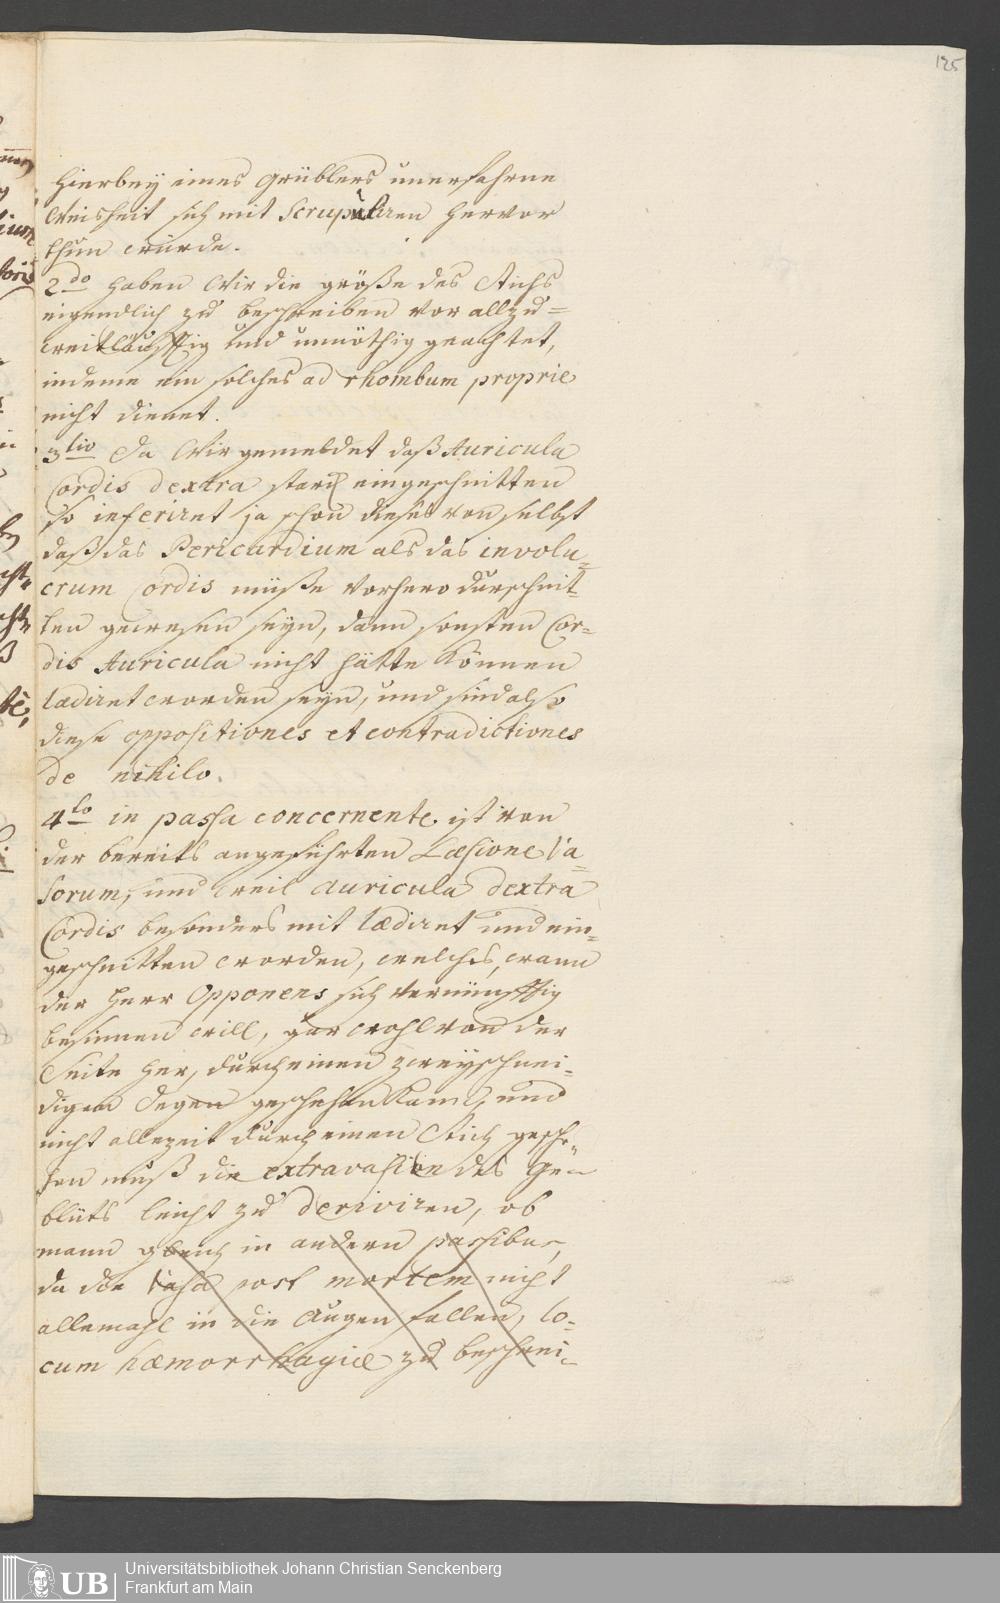 125
hierbey eines Grüblers unerfahrne
Weisheit sich mit Scrupuliren hervor
thun würde.
2do haben Wir die größe des Stichs
eigendlich zu beschreiben vor allzu=
weitläufftig und unnöthig geachtet,
indeme ein solches ad rhombum proprie
nicht dienet.
3tio Da Wir gemeldet daß Auricula
Cordis dextra starck eingeschnitten
so inferiret ja schon dieses von selbst
daß das Pericardium als das involu=
crum Cordis müße vorhero durschnit=
ten gewesen seyn, dann sonsten Cor=
dis Auricula nicht hätte können
laediret worden seyn, und sind also
diese oppositiones et contradictiones
de nihilo.
4to in passu concernente ist von
der bereits angeführten Læsione Va=
sorum, und weil auricula dextra
Cordis besonders mit lædiret und ein=
geschnitten worden, welches, wann
der Herr Opponens sich vernünfftig
besinnen will, gar wohl von der
Seite her, durch einen zweyschnei=
digen Degen geschehen kann, und
nicht allezeit durch einen Stich gesche=
hen muß die extravasion des Ge=
blüts leicht zu deriviren, ob
mann gleich in andern passibus,
da die vasa post mortem nicht
allemahl in die Augen fallen, lo=
cum hæmorrhagiæ zu beschrei=
Universitätsbibliothek Johann Christian Senckenberg
Frankfurt am Main
UB